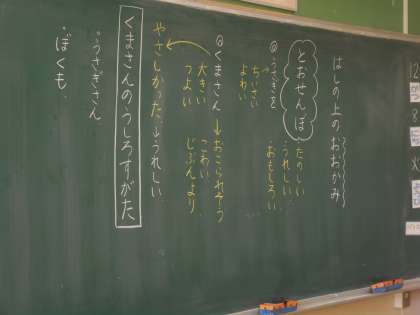 はしの上のおおかみ
とおせんぼ
たのしい
うれしい
おもしろい
@うさぎを
ちいさい
よわい
@くまさん→おこられそう
大きい
つよい
こわい
じぶんより
やさしかった→うれしい
くまさんのうしろすがた
・うさぎさん
・ぼくも、